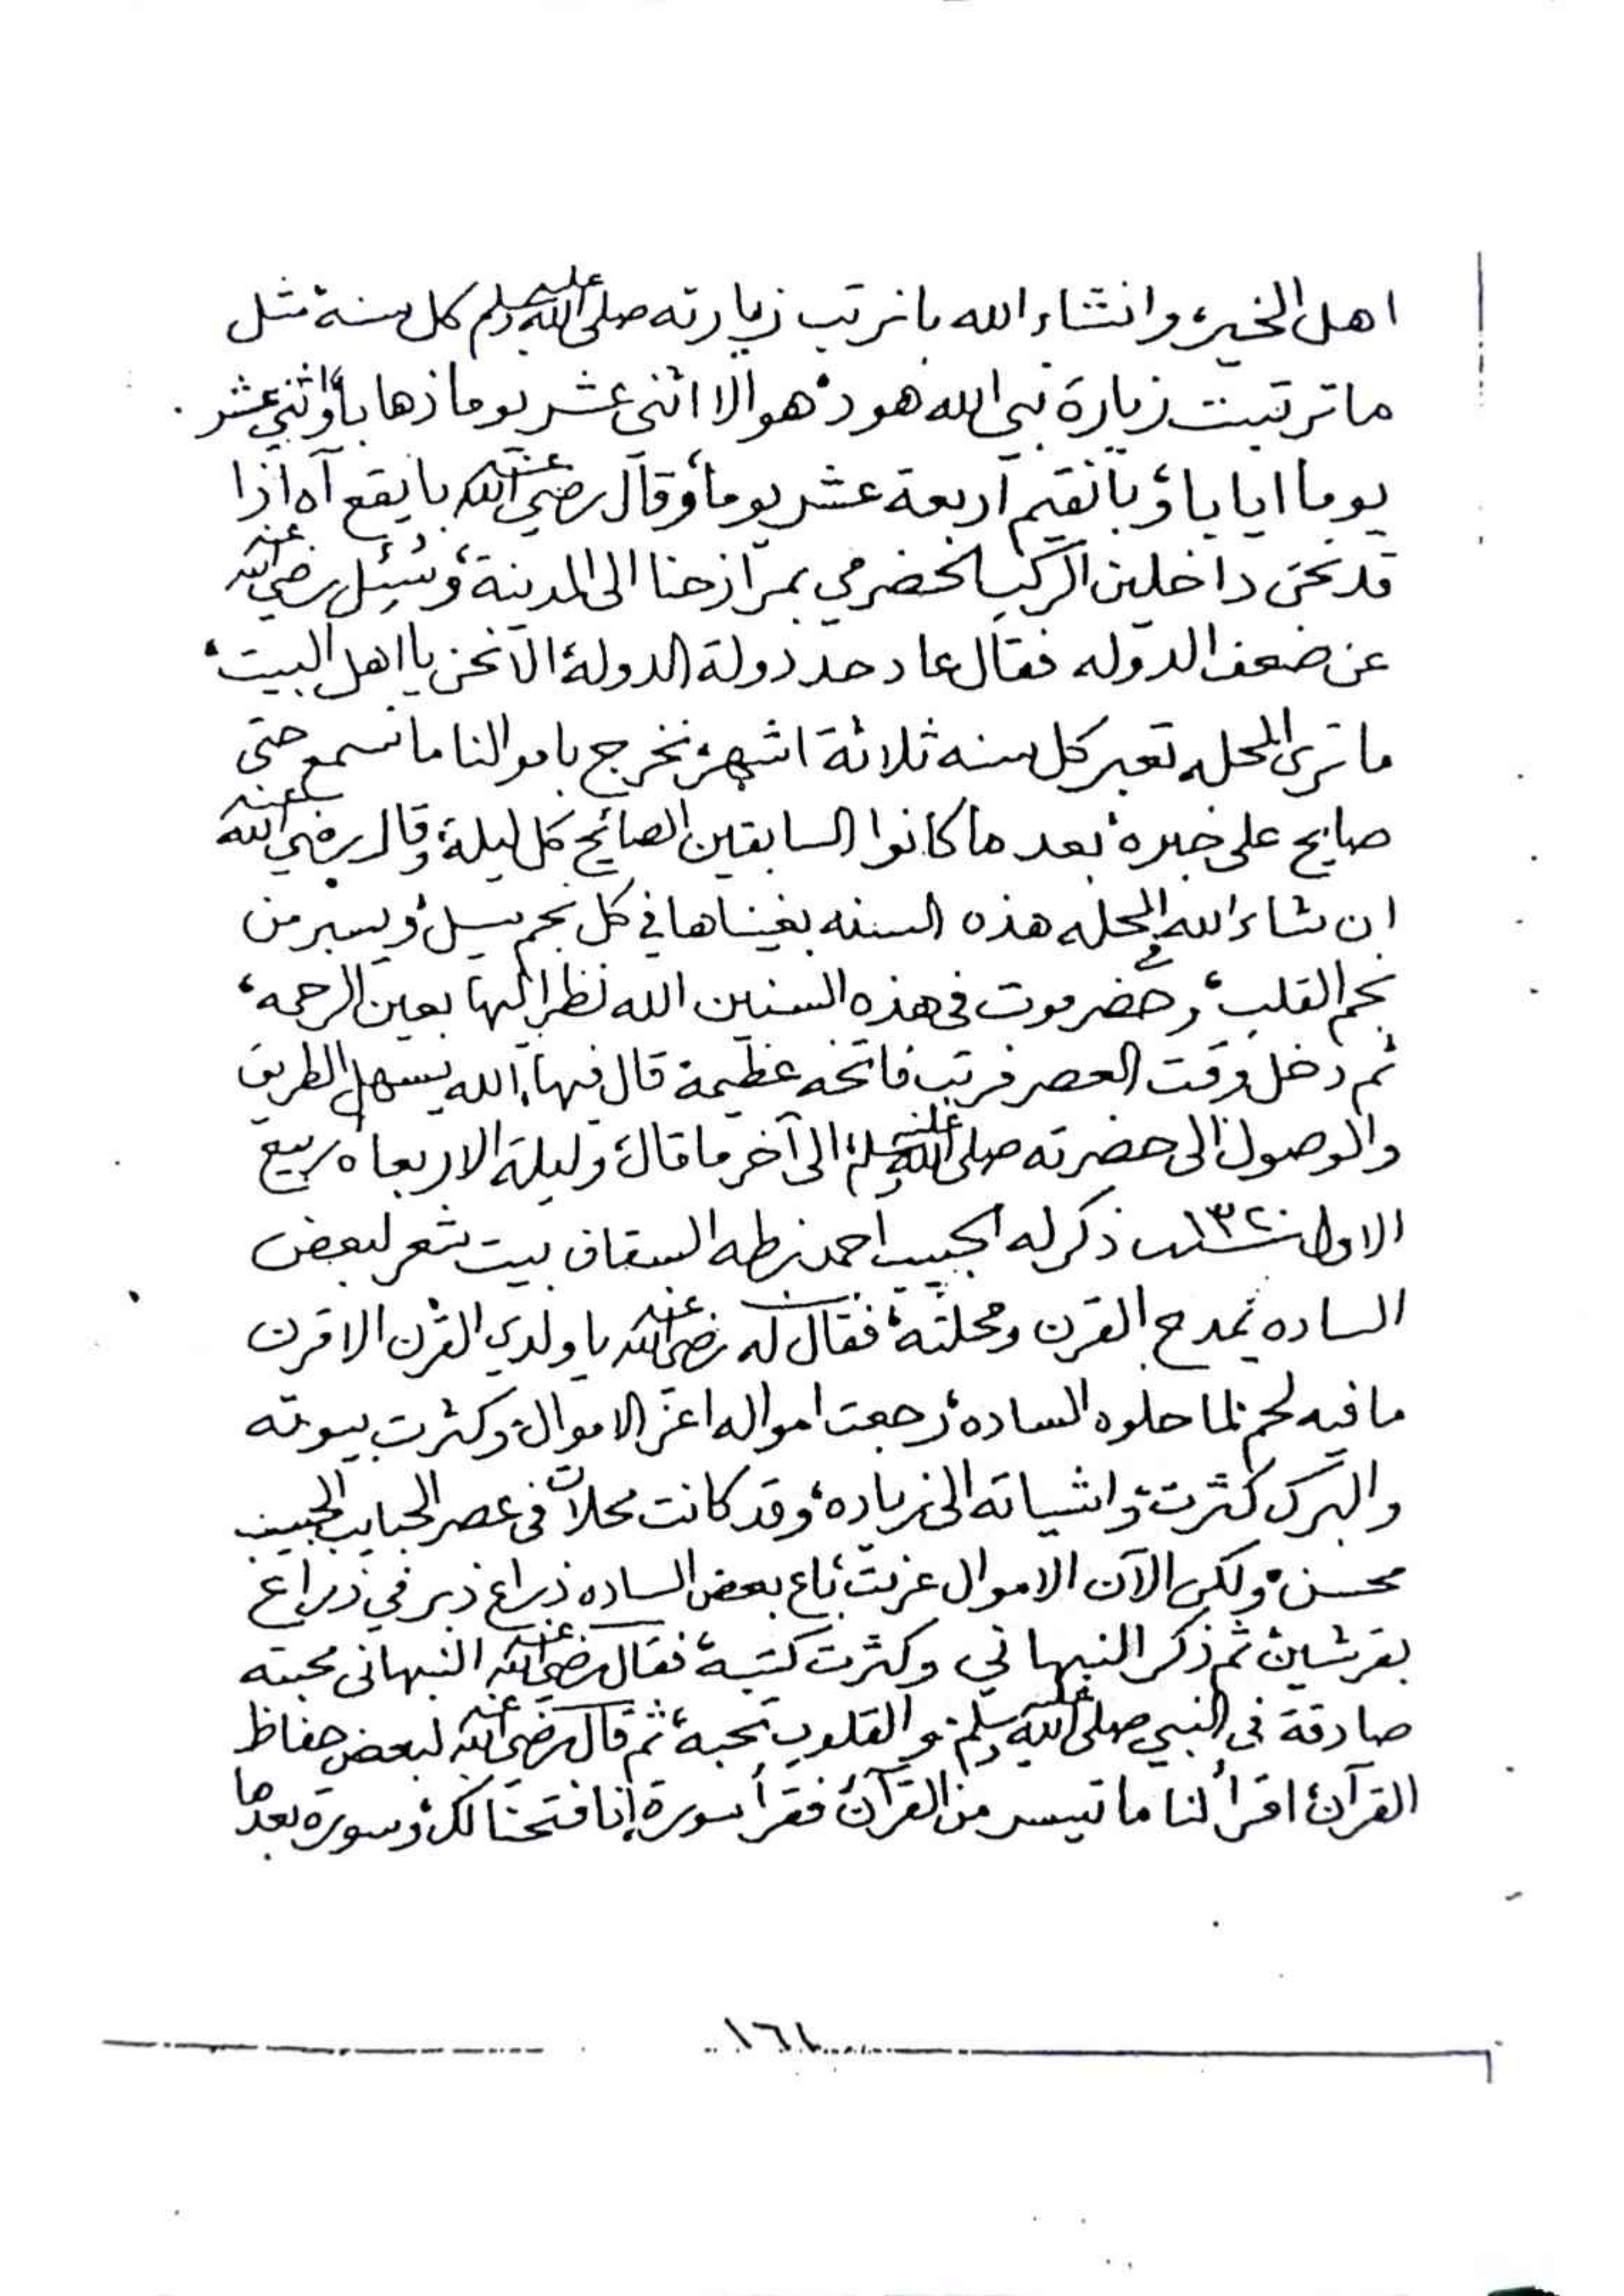 اهل الخير، وانشاء الله بانرتب زيارته صلى الله عليه وسلم كل سنة، مثل
ما ترتبت زيارة نبي الله هود، هو الا اثني عشر يوما ذهابا، واثني عشر
يوما ايابا، وبانقيم اربعة عشر يوما، وقال رضي الله عنه بايقع آه اذا
قد نحن داخلين الركب الحضرمي بمرازحنا الى المدينة، وسُئِل رضي الله عنه
عن ضعف الدوله فقال عاد حد دولة، الدولة الا نحن يا اهل البيت،
ما ترى المحله تعبر كل سنه ثلاثة اشهر، نخرج باموالنا ما نسمع حتى
صايح على خبره، بعد ما كانوا السابقين الصائح كل ليلة، وقال رضي الله عنه
ان شاء الله المحله هذه السنه بغيناها في كل نجم سيل، ويسبر من
نجم القلب، وحضرموت في هذه السنين الله نظر اليها بعين الرحمه،
ثم دخل وقت العصر فرتب فاتحه عظيمة قال فيها، الله يسهل الطريق
والوصول الى حضرته صلى الله عليه وسلم، الى آخر ما قال، وليلة الاربعاء ربيع
الاول سنة ١٣٢٠ ذكر له الحبيب احمد بن طه السقاف بيت شعر لبعض
الساده يمدح القرن ومحلته، فقال له رضي الله عنه يا ولدي القرن الا قرن
ما فيه لحم لما حلوه الساده، رجعت امواله اعز الاموال، وكثرت بيوته
والبرك كثرت، واشياته الى زياده، وقد كانت محلات في عصر الحبايب الحبيب
محسن، ولكن الآن الاموال عزيت، باع بعض الساده ذراع ذبر في ذراع
بقرشين، ثم ذكر النبهاني وكثرت كتبه، فقال رضي الله عنه النبهاني محبته
صادقة في النبي صلى الله عليه وسلم، والقلوب تحبه، ثم قال رضي الله عنه لبعض حفاظ
القرآن، اقرأ لنا ما تيسر من القرآن، فقرأ سورة إنا فتحنا لك، وسورة بعدها
١٦١